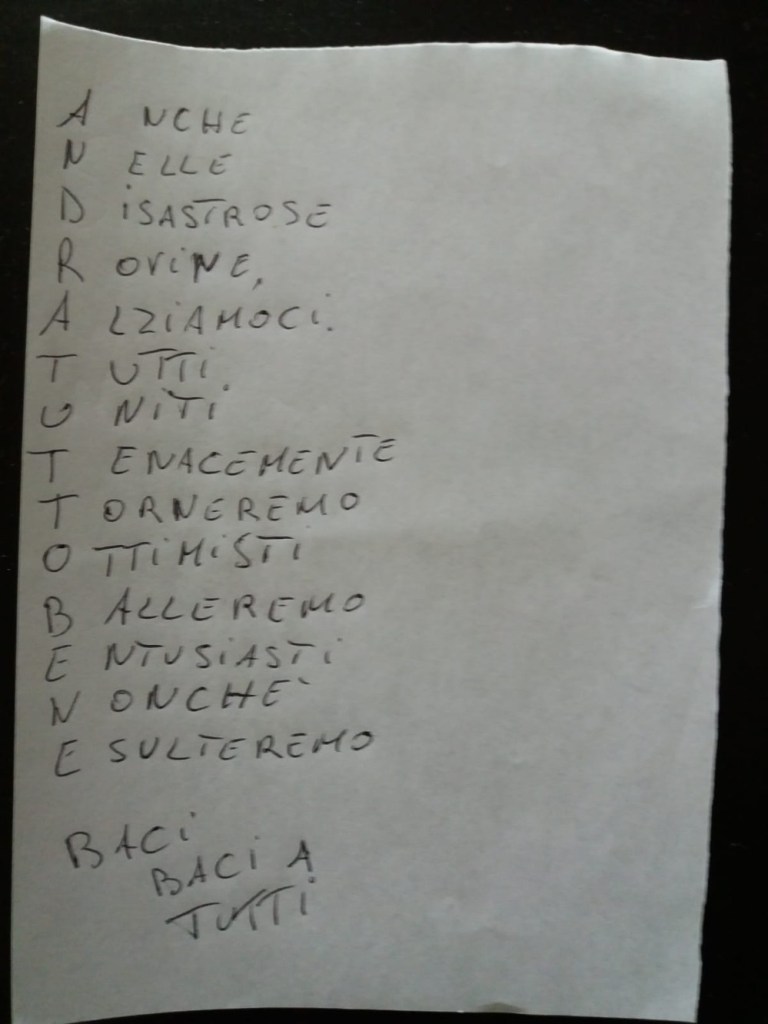 A NCHE
N ELLE
D iSASTROSE
R OViNE,
A LZiAMOCi.
T UTTi.
U NiTi
T ENACEMENTE
T ORNEREMO
O TTiMiSTi
B ALLEREMO
E NTUSiASTi
N ONCHE`
E SULTEREMO
BACi
BACi A
TUTTi